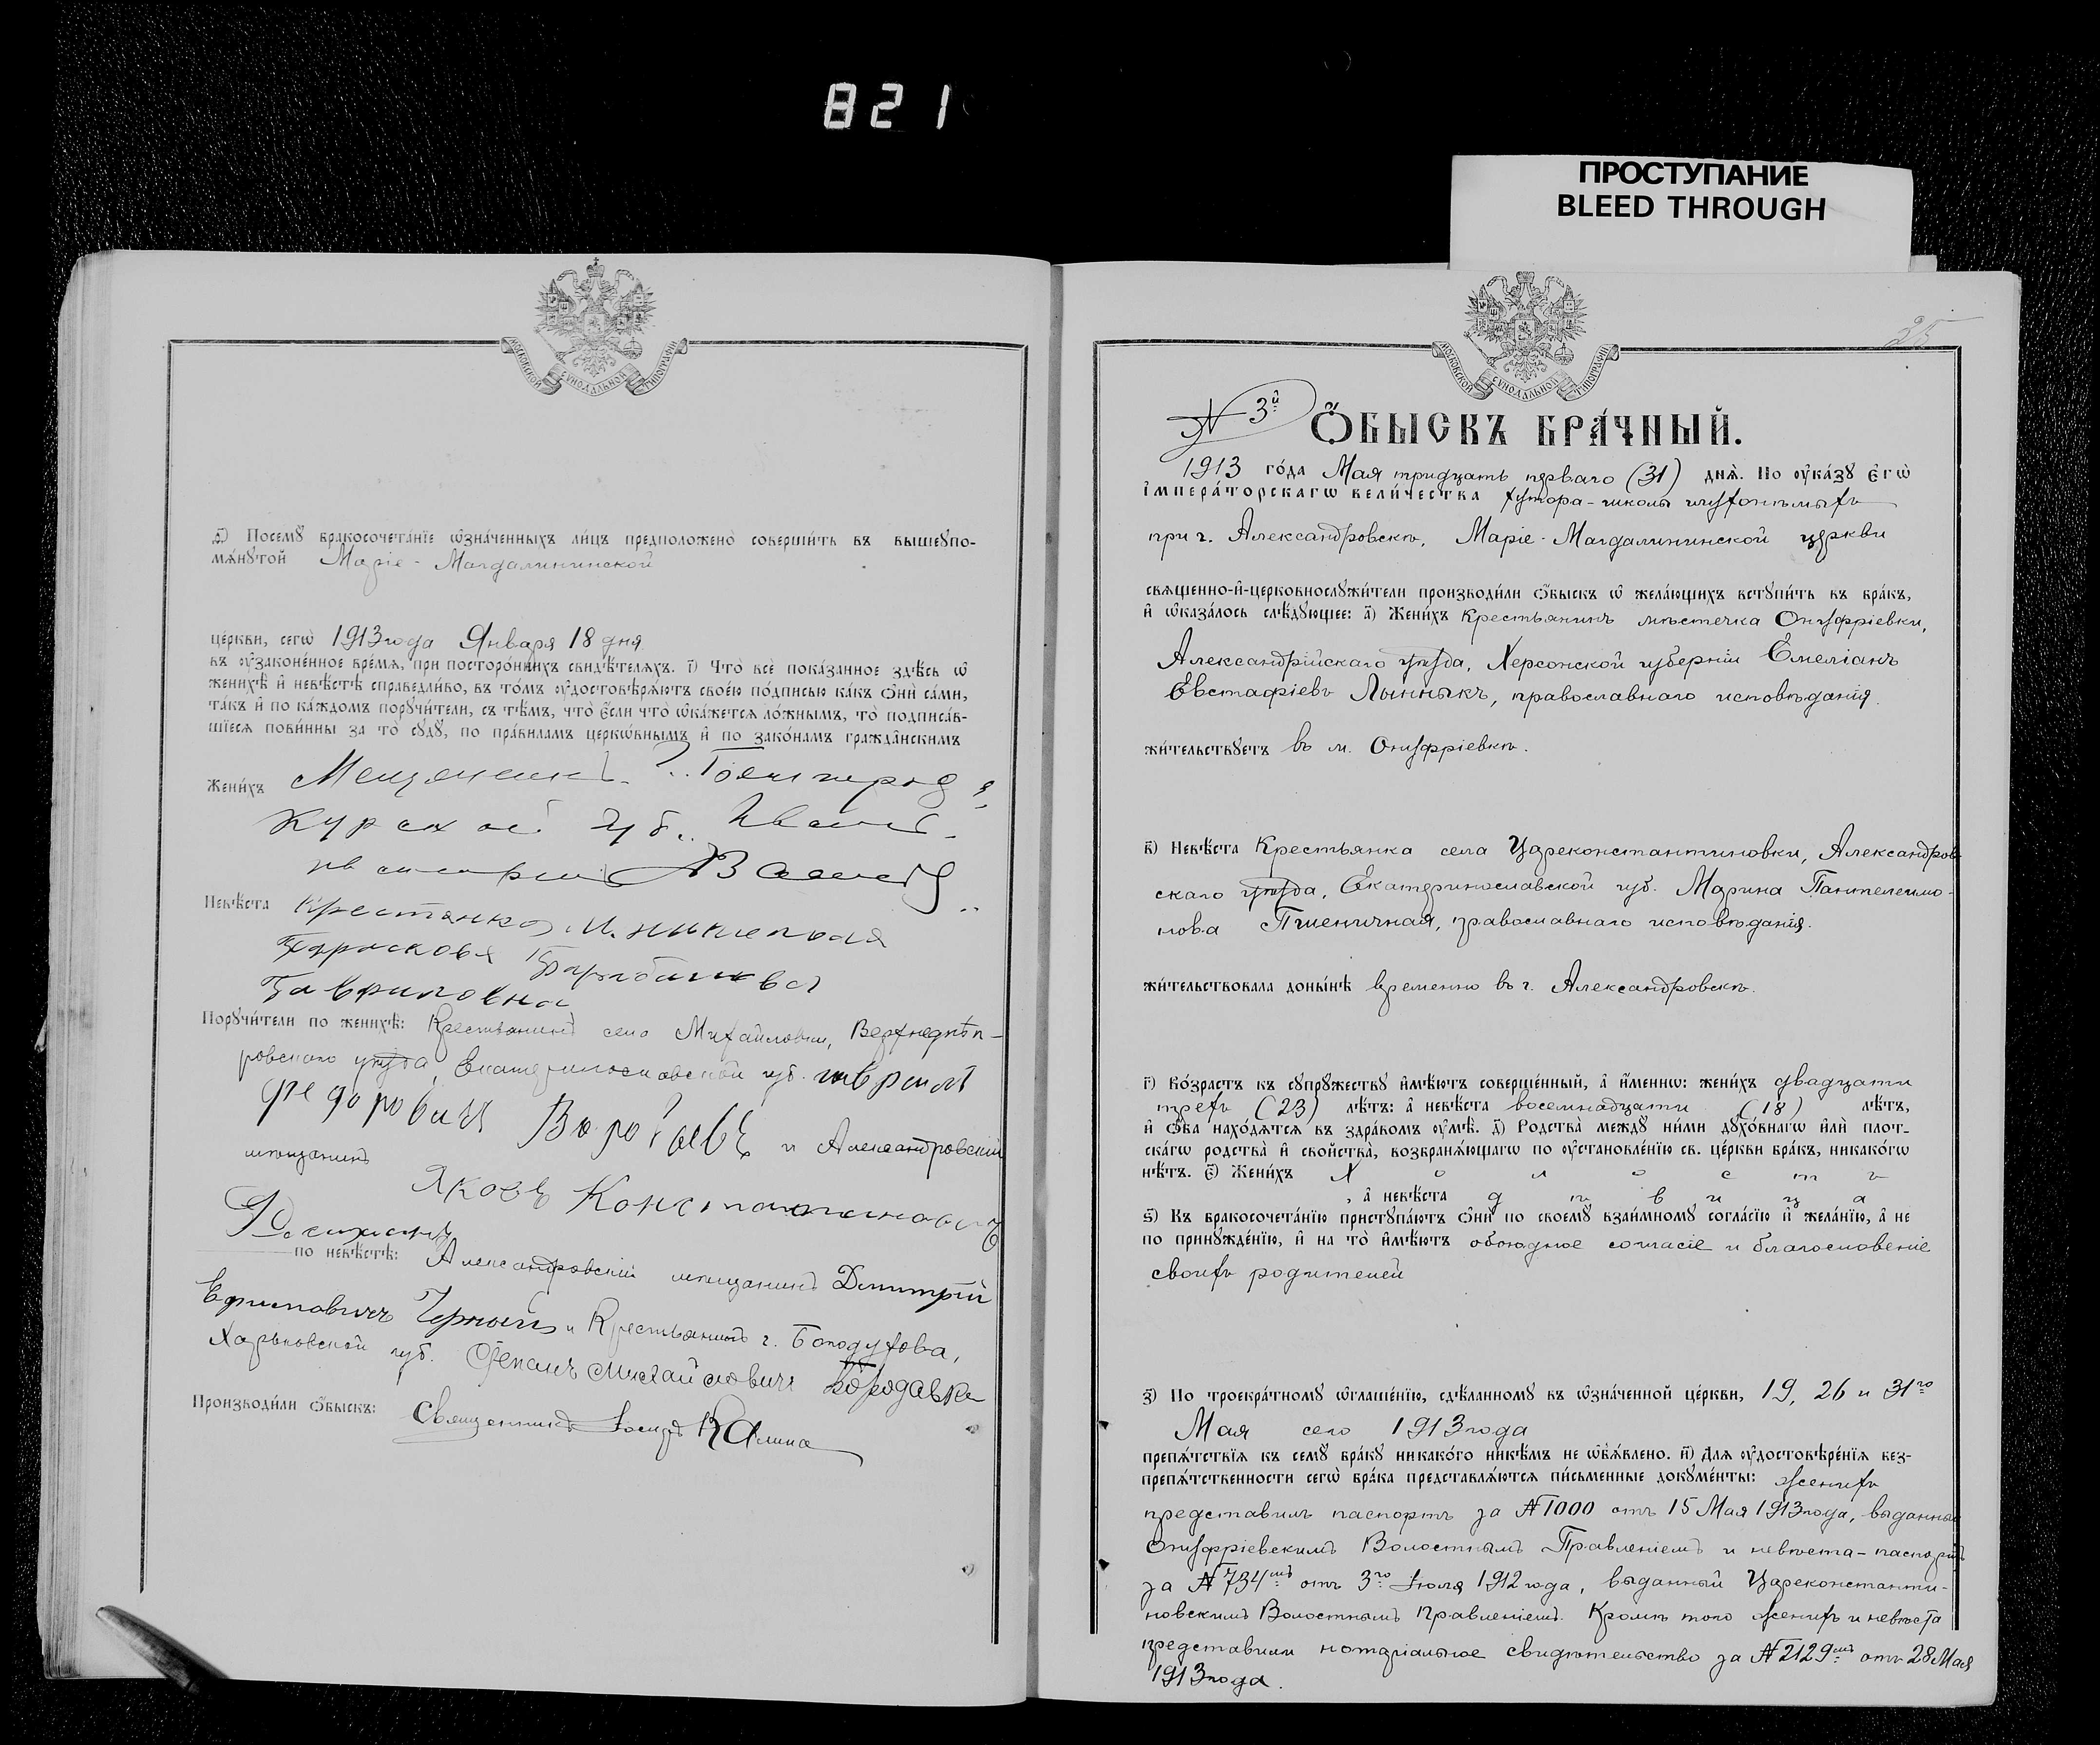 821
ПРОСТУПАНИЕ
BLEED THROUGH
МОСКОВСКОЙ СѴНОДАЛЬНОЙ ТИПОГРАФІИ
ѳ҃) Посемꙋ бракосочета́нїе ѡ҆зна́ченныхъ ли́цъ предположено̀ соверши́ть въ вышеꙋпо-
мѧ́нꙋтой Маріе-Магдалининской
це́ркви, сегѡ̀ 1913 года Января 18 дня
въ ᲂу҆зако́ненное вре́мѧ, при посторо́ннихъ свидѣ́телѧхъ. і҃) Что̀ всѐ пока́занное здѣ́сь ѡ҆
женихѣ̀ и҆ невѣ́стѣ справедли́во, въ то́мъ ᲂу҆достовѣрѧ́ютъ свое́ю по́дписью ка́къ ѻ҆нѝ са́ми,
та́къ и҆ по ка́ждомъ порꙋчи́тели, съ тѣ́мъ, что̀ є҆́сли что̀ ѡ҆ка́жетсѧ ло́жнымъ, то̀ подписа́в-
шїесѧ пови́нны за то̀ сꙋдꙋ̀, по пра́виламъ церко́внымъ и҆ по зако́намъ гражда́нскимъ
Жени́хъ Мещененъ
Курской губ. Иванъ
Невѣ́ста Крестянка м. Никополя
Парасковя
Гавриловна
Порꙋчи́тели по женихѣ̀: Крестьянинъ села Михайловки, Верхнеднѣп-
ровскаго уѣзда, Екатеринославской губ. гавриилъ
Федоровичъ и Александровскій
мѣщанинъ Яковъ Константиновичъ
по невѣ́стѣ: Александровскій мѣщанинъ Дмитрій
Ефимовичъ Черный и Крестьянинъ г. Богодухова,
Харьковской губ. Степанъ Михайловичъ Бородавка
Произво́дили ѻ҆́быскъ: Священникъ Іосифъ Калина
МОСКОВСКОЙ СѴНОДАЛЬНОЙ ТИПОГРАФІИ
25
№ 3й ѺБЫСКЪ БРА́ЧНЫЙ.
1913 го́да Мая тридцать перваго (31) днѧ̀. По ᲂу҆ка́зꙋ є҆гѡ̀
і҆мпера́торскагѡ вели́чества хутора-школы глухонѣмыхъ
при г. Александровскѣ, Маріе-Магдалининской церкви
свѧще́нно-и҆-церковнослꙋжи́тели произво́дили ѻ҆́быскъ ѡ҆ жела́ющихъ встꙋпи́ть въ бра́къ,
и҆ ѡ҆каза́лось слѣ́дꙋющее: а҃) Жени́хъ Крестьянинъ мѣстечка Онуфріевки,
Александрійскаго уѣзда, Херсонской губерніи Емеліанъ
Евстафіевъ Лынныкъ, православнаго исповѣданія.
жи́тельствꙋетъ въ м. Онуфріевкѣ.
в҃) Невѣ́ста Крестьянка села Цареконстантиновки, Александров-
скаго уѣзда, Екатеринославской губ. Марина Пантелеимо-
нова Пшеничная, православнаго исповѣданія.
жи́тельствовала доны́нѣ временно въ г. Александровскѣ.
г҃) Во́зрастъ къ сꙋпрꙋ́жествꙋ и҆мѣ́ютъ соверше́нный, а҆ и҆́меннѡ: жени́хъ двадцати
трехъ (23) лѣ́тъ: а҆ невѣ́ста восемнадцати (18) лѣ́тъ,
и҆ ѻ҆́ба нахо́дѧтсѧ въ здра́вомъ ᲂу҆мѣ̀. д҃) Родства̀ междꙋ̀ ни́ми дꙋхо́внагѡ и҆лѝ плот-
ска́гѡ родства̀ и҆ сво́йства, возбранѧ́ющагѡ по ᲂу҆становле́нїю св. це́ркви бра́къ, никако́гѡ
нѣ́тъ. є҃) Жени́хъ Холостъ
, а҆ невѣ́ста дѣвица
ѕ҃) Къ бракосочета́нїю пристꙋпа́ютъ ѻ҆нѝ по своемꙋ̀ взаи́мномꙋ согла́сїю и҆ жела́нїю, а҆ не
по принꙋжде́нїю, и҆ на то̀ и҆мѣ́ютъ обоюдное согласіе и благословеніе
своихъ родителей
з҃) По троекра́тномꙋ ѡ҆глаше́нїю, сдѣ́ланномꙋ въ ѡ҆зна́ченной це́ркви, 19, 26 и 31го
Мая сего 1913 года
препѧ́тствїѧ къ семꙋ̀ бра́кꙋ никако́го никѣ́мъ не ѡ҆бъѧ́влено. и҃) Для ᲂу҆достовѣре́нїѧ без-
препѧ́тственности сегѡ̀ бра́ка представлѧ́ютсѧ пи́сьменные докꙋме́нты: женихъ
представилъ паспортъ за № 1000 отъ 15 Мая 1913 года, выданный
Онуфріевскимъ Волостнымъ Правленіемъ и невѣста - паспортъ
за № 734мъ отъ 3го Іюля 1912 года, выданный Цареконстанти-
новскимъ Волостнымъ Правленіемъ. Кромѣ того женихъ и невѣста
представили нотаріальное свидѣтельство за № 2129мъ отъ 28 Мая
1913 года.